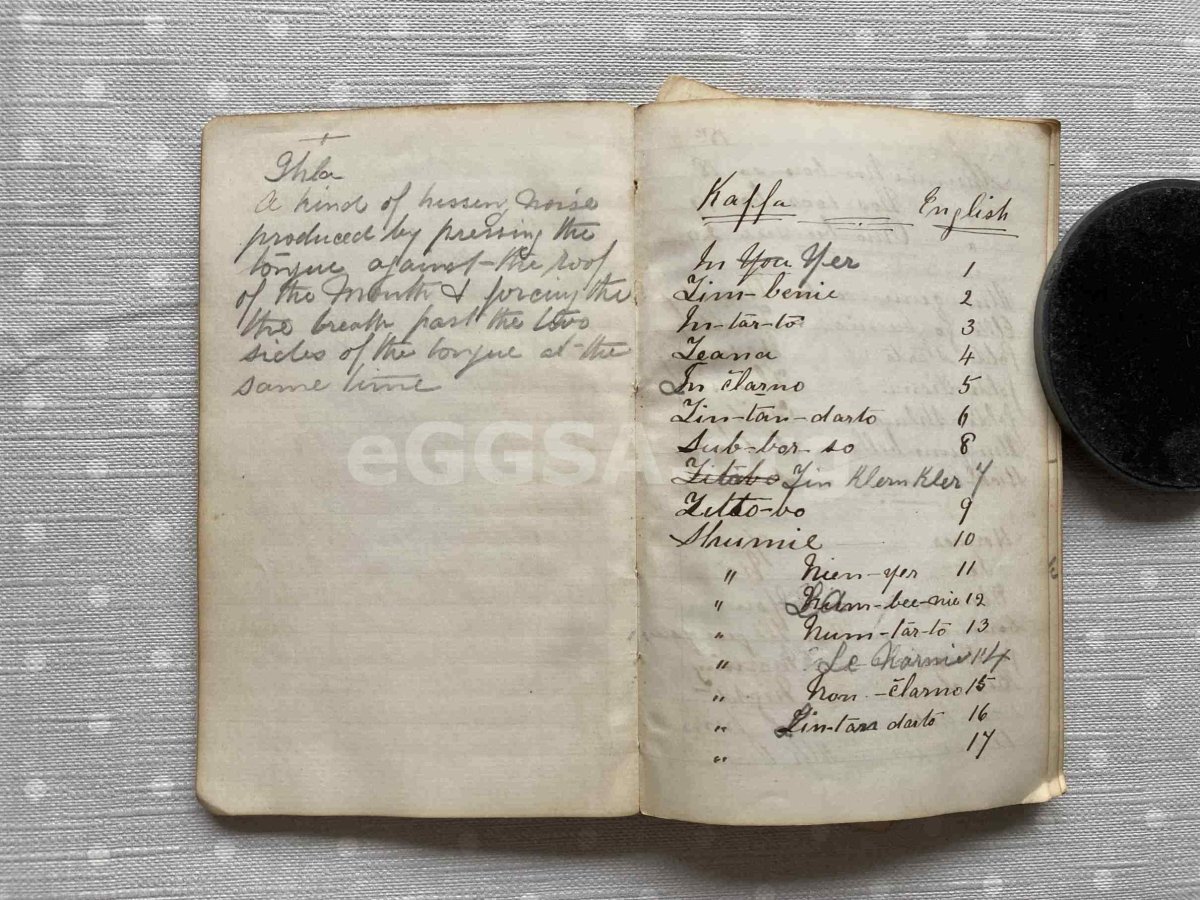 Thla
A kind of hissen noise
produced by pressing the
tongue against the roof
of the mouth & forcing the
the breath past the two
sides of the tongue at the
same time
Kaffa English
In You Yer 1
Zim-benie 2
In-tar-to 3
Zeana 4
In clarno 5
Zin-tan-darto 6
Sub-bor-so 8
Zitabo Zin Klern Kler 7
Zitto-bo 9
Shumie 10
" Nien-yer 11
" -bee-nie 12
" Num-tar-to 13
" Le 14
" Non-clarno 15
" Zin-tan darto 16
" 17
eGGSA.org